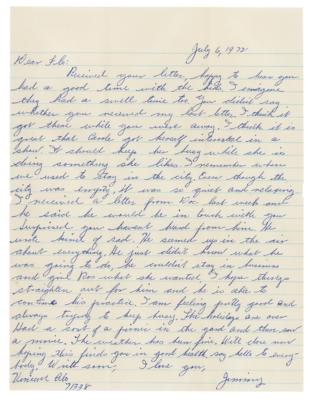 July 6, 1972
Dear Flo:
Received your letter, happy to hear you
had a good time with the kids. I imagine
they had a swell time too. You didn't say
whether you received my last letter. I think it
got there while you were away. I think it is
great that Carole got herself interested in a
show. It should keep her busy while she is
doing something she likes. I remember when
we used to stay in the city Even though the
city was empty, it was so quiet and relaxing
I received a letter from Doc last week and
he said he would be in touch with you
Surprised you haven't heard from him. He
wrote kind of sad. He seemed up in the air
about everything. He just didn't know what he
was going to do. He couldn't stay in business
and give Doc what she wanted. I hope things
straighten out for him and he is able to
continue his practice. I am feeling pretty good and
always trying to keep busy. The holidays are over
Had a sort of a picnic in the yard and then saw
a movie. The weather has been fine. Will close now
hoping this finds you in good health, say hello to every-
body. Write soon, I love you,
Jimmy
Vincent Alo
71738